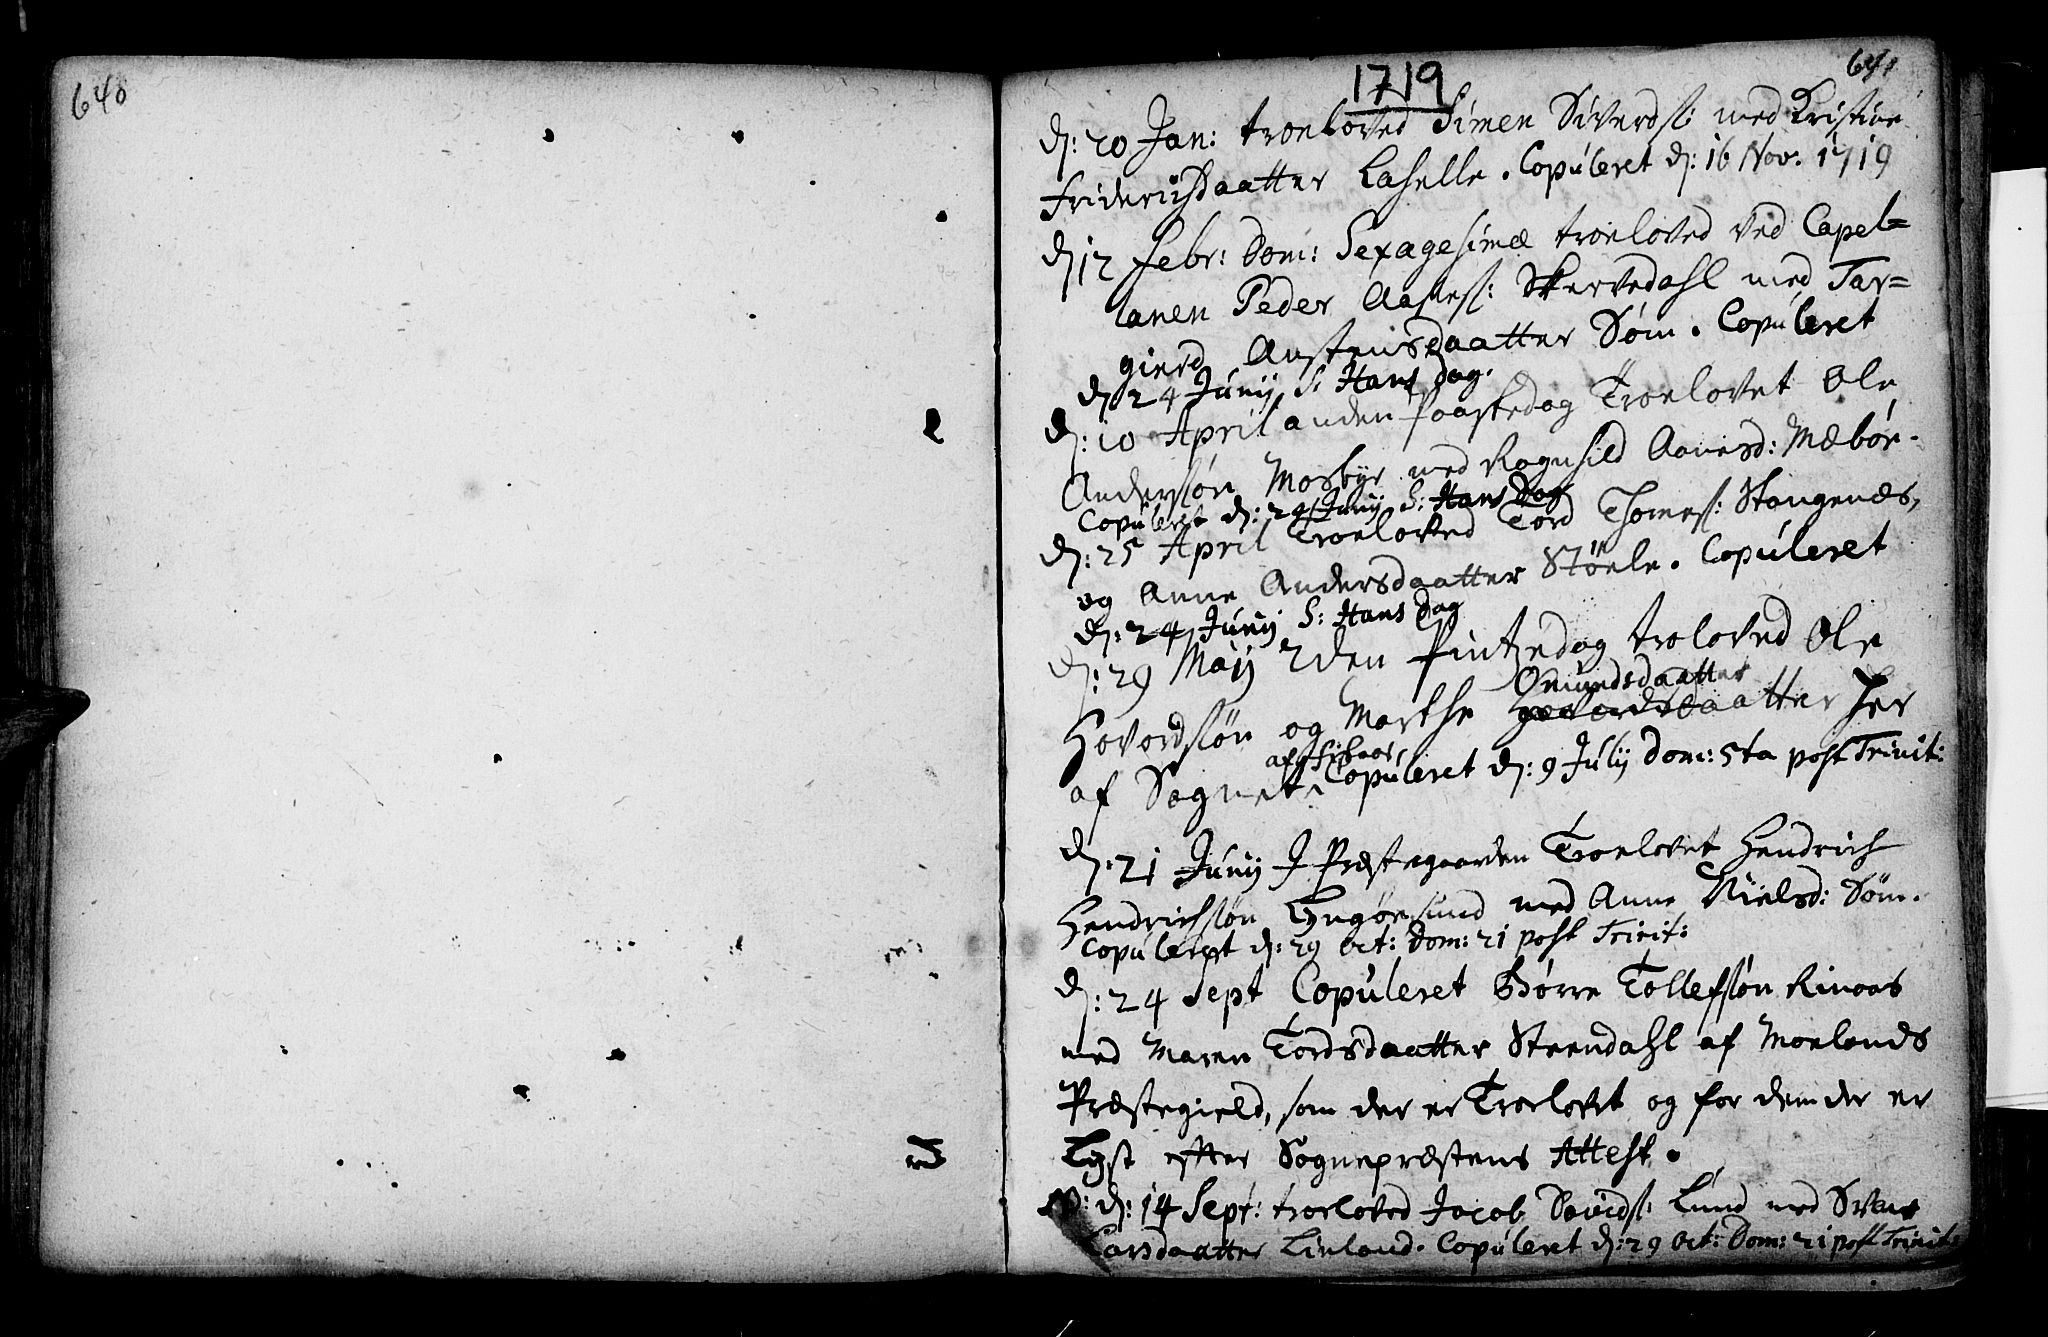 640
641
1719
d: 20 Jan: troeloved Simen Siverds: med Kristine
Friderichsdaatter Laselle. Copuleret d: 16 Nov. 1719
d 12 Febr: Dom: Sexagesimæ troeloved ved Capel=
lanen Peder Aanes: Skervedahl med Tar=
gierd Anstensdaatter Søm. Copuleret
d 24 Junij S: Hans Dag.
d: 10 April anden Paaskedag Troelovet Ole
Andersøn Mosbye med Ragnhild Aanesd: Mæbøe.
Copuleret d: 24 Junij S: Hans Dag
d: 25 April Troeloved Tord Thomes: Stangenæs,
og Anne Andersdaatter Støele. Copuleret
d: 24 Junij S: Hans Dag
d: 29 Maij 2den Pintzedag troloved Ole
Omundsdaatter
Hovordsøn og Marthe daatter her
af
af Sognet. Copuleret d: 9 Julij Dom: 5ta post Trinit:
d: 21 Junij I Præstegaarden Troelovet Hendrich
Hendrichsøn Lyngøesund med Anne Nielsd: Søm.
Copuleret d: 29 Oct: Dom: 21 post Trinit:
d: 24 Sept Copuleret Børre Tollefsøn Rinaas
med Maren Tordsdaatter Steendahl af Moelands
Præstegield, som der er Troelovet og for dem der er
Lyst efter Sognepræstens Attest.
d: 14 Sept: troeloved Jacob Davids: Lund med
Larsdaatter Lieland. Copuleret d: 29 Oct: Dom: 21 post Trinit: